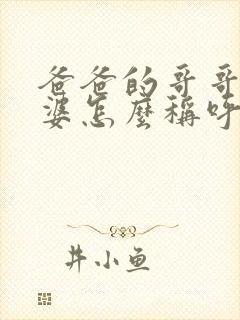 爸爸的哥哥
婆怎麼稱呼
井小鱼